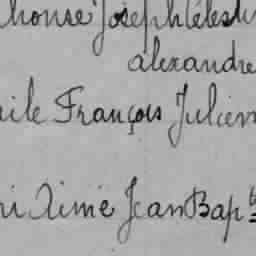 Phonse Joseph Célestin
alexandre
ile François Julien
ri Aimé Jean Bap te